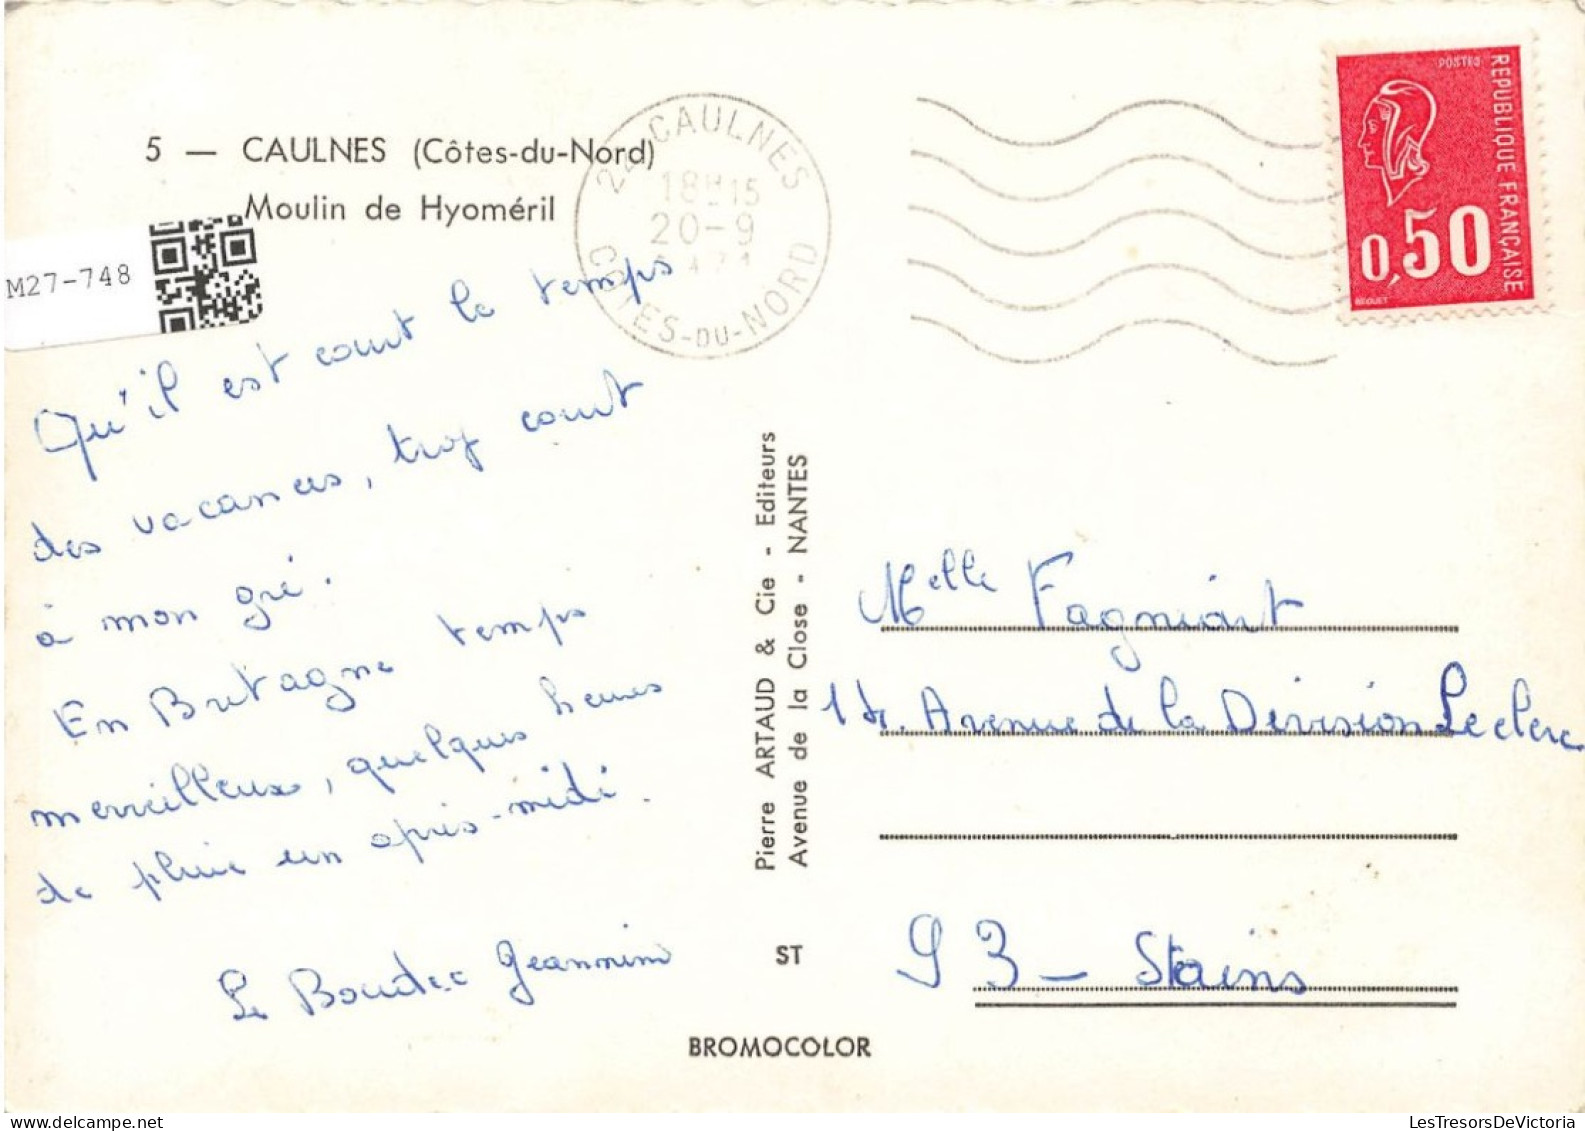 5 — CAULNES (Côtes-du-Nord)
Moulin de Hyoméril
M27-748
22 CAULNES
18H15
20-9
CÔTES-DU-NORD
POSTES
REPUBLIQUE FRANÇAISE
0,50
BEQUET
Qu'il est court le temps
des vacances, trop court
à mon gré.
En Bretagne temps
merveilleux, quelques heures
de pluie un après-midi.
Le Boudec Jeannine
Pierre ARTAUD & Cie - Editeurs
Avenue de la Close - NANTES
ST
BROMOCOLOR
Melle Fagniart
Avenue de la Division Leclerc
93 - Stains
LesTresorsDeVictoria